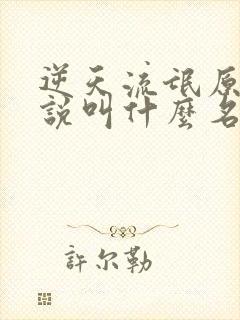 逆天流氓原
說叫什麼名
許尔勒